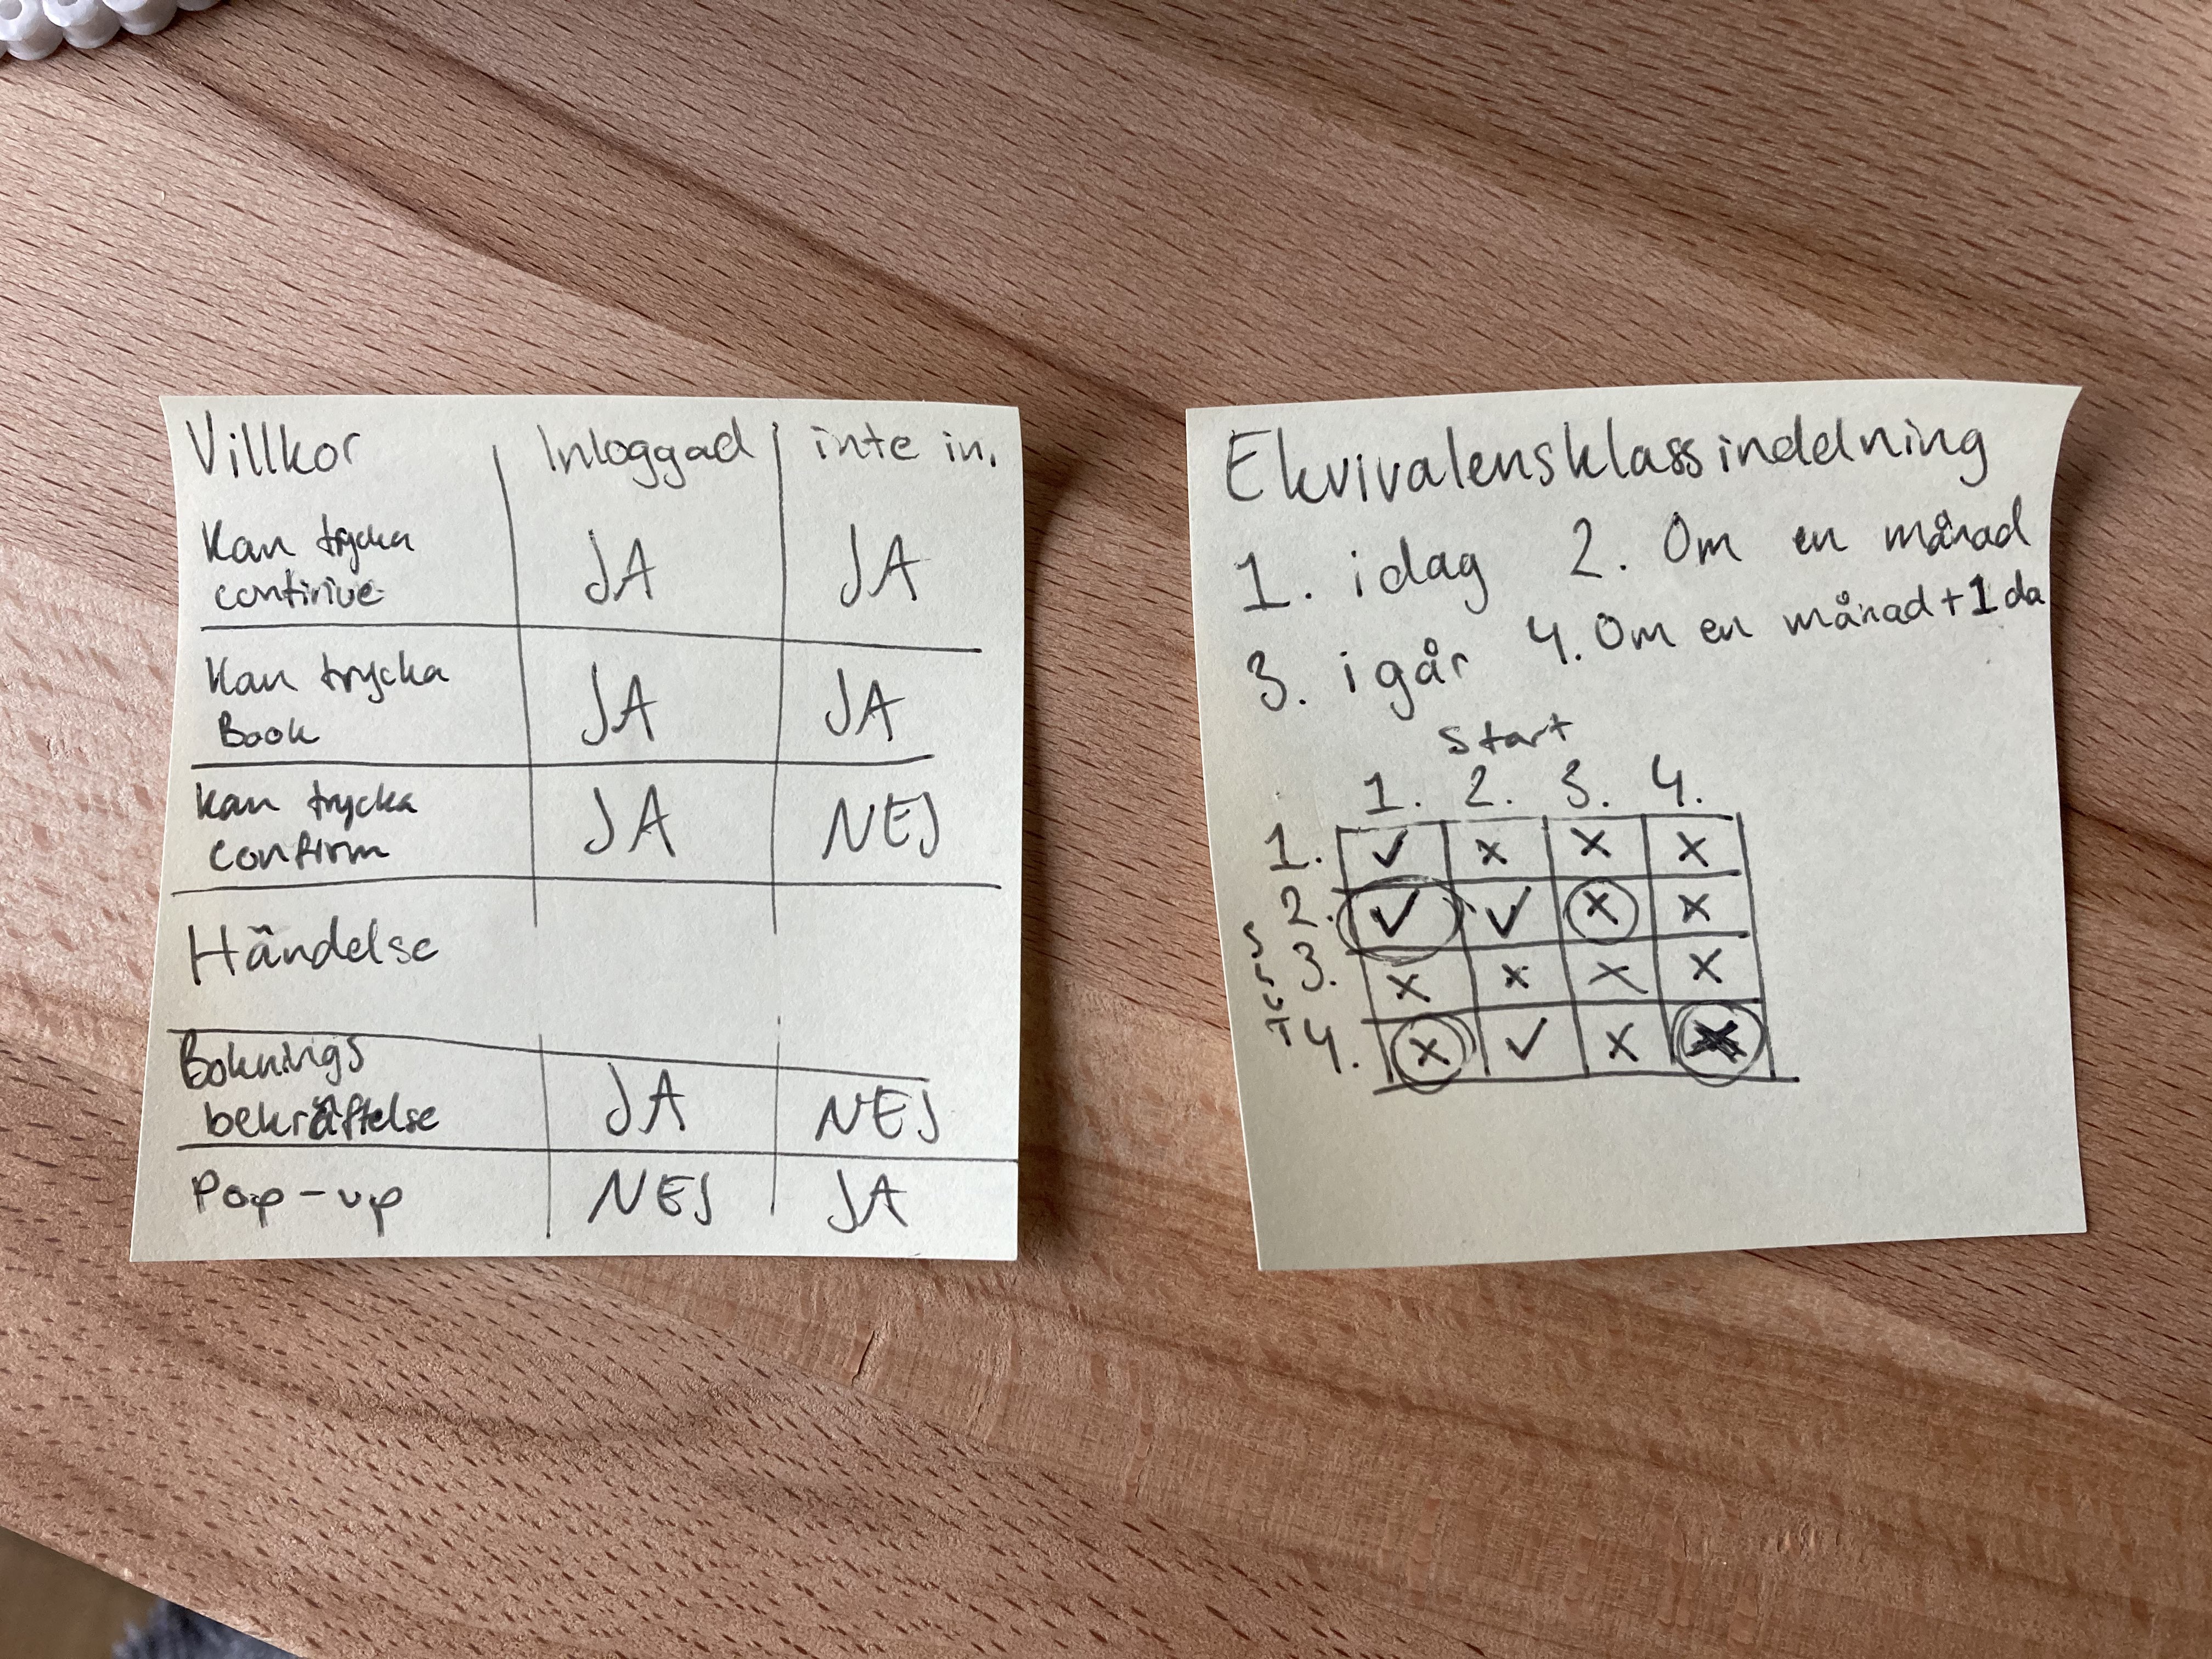 Villkor Inloggad inte in.
Kan trycka
continue JA JA
Kan trycka
Book JA JA
kan trycka
confirm JA NEJ
Händelse
Boknings
bekräftelse JA NEJ
Pop-up NEJ JA
Ekvivalensklassindelning
1. idag 2. Om en månad
3. igår 4. Om en månad +1 da
Start
1. 2. 3. 4.
1. ✓ x x x
2. ✓ ✓ x x
3. x x x x
4. x ✓ x x